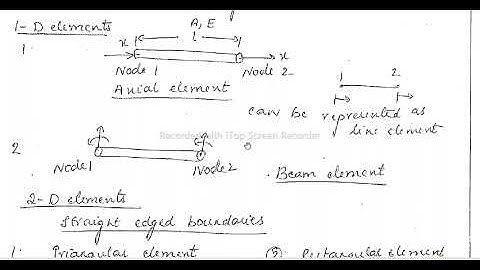 1-D elements
A, E
1
x
l
x
Node 1
Node 2
1
2
Axial element
can be represented as
line element
Recorded with iTop Screen Recorder
2
Node 1
Node 2
Beam element
2-D elements
Straight edged boundaries
1. Triangular element
(2) Rectangular element